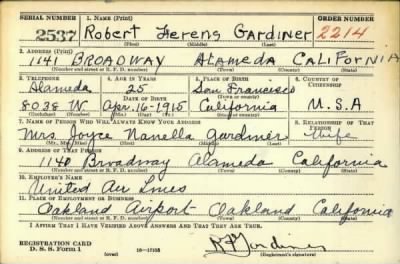 SERIAL NUMBER 1. NAME (Print) ORDER NUMBER
2537 Robert Ferens Gardiner 2214
(First) (Middle) (Last)
2. ADDRESS (Print)
1141 BROADWAY ALAMEDA CALIFORNIA
(Number and street or R. F. D. number) (Town) (County) (State)
3. TELEPHONE 4. AGE IN YEARS 5. PLACE OF BIRTH 6. COUNTRY OF CITIZENSHIP
Alameda 25 San Francisco
DATE OF BIRTH
8038 W Apr. 16-1915 California U.S.A
7. NAME OF PERSON WHO WILL ALWAYS KNOW YOUR ADDRESS 8. RELATIONSHIP OF THAT PERSON
Mrs. Joyce Nanella Gardiner Wife
(Mr., Mrs., Miss) (First) (Middle) (Last)
9. ADDRESS OF THAT PERSON
1140 Broadway Alameda California
(Number and street or R. F. D. number) (Town) (County) (State)
10. EMPLOYER'S NAME
United Air Lines
11. PLACE OF EMPLOYMENT OR BUSINESS
Oakland Airport Oakland California
(Number and street or R. F. D. number) (Town) (County) (State)
I AFFIRM THAT I HAVE VERIFIED ABOVE ANSWERS AND THAT THEY ARE TRUE.
REGISTRATION CARD
D. S. S. Form 1 (over) R F Gardiner
(Registrant's signature)